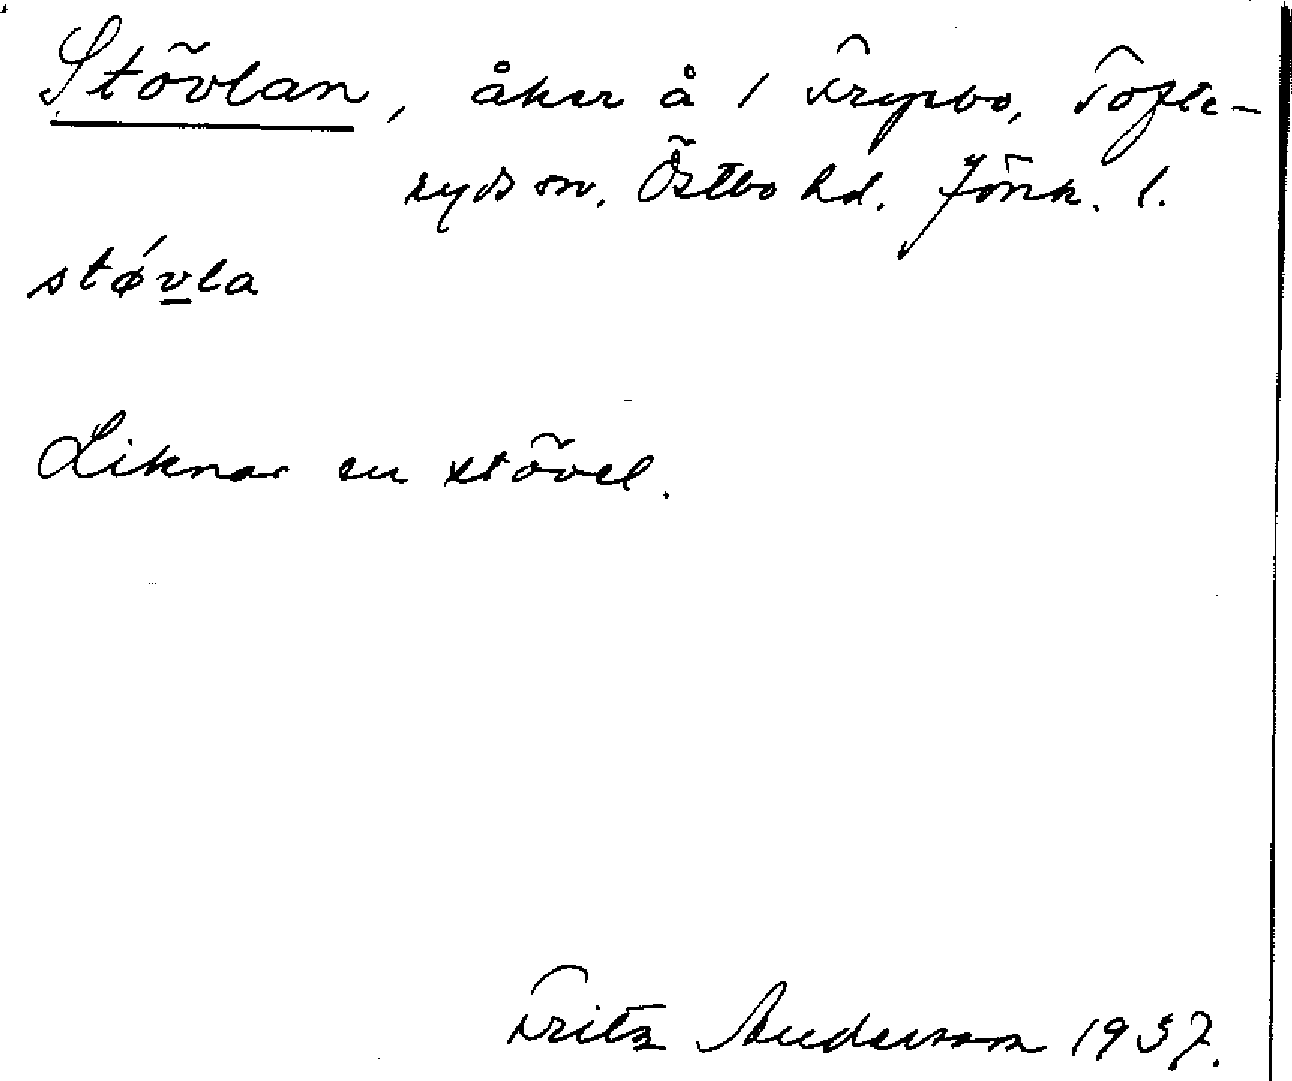 Stövlan, åker å 1 Frypbo, Tofte-
ryds sn. Östbo hd. Jönk. l.
stǿv̲la
Liknar en stövel.
Fritz Anderson 1937.